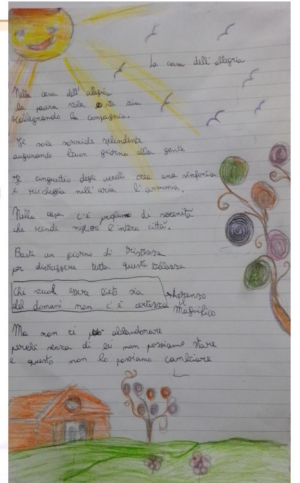 La casa dell'allegria
Nella casa dell'allegria
la paura vola via
rallegrando la compagnia.
Il sole sorride splendente
augurando buon giorno alla gente
Il cinguettio degli uccelli crea una sinfonia
e riecheggia nell'aria l'armonia.
Nella casa c'è profumo di serenità
che rende migliore l'intera città.
Basta un pizzico di tristezza
per distruggere tutta questa bellezza
Chi vuol esser lieto sia
del doman non c'è certezza
Lorenzo
Magnifico
Ma non ci può abbandonare
perché senza di lei non possiamo stare
e questo non lo possiamo cambiare